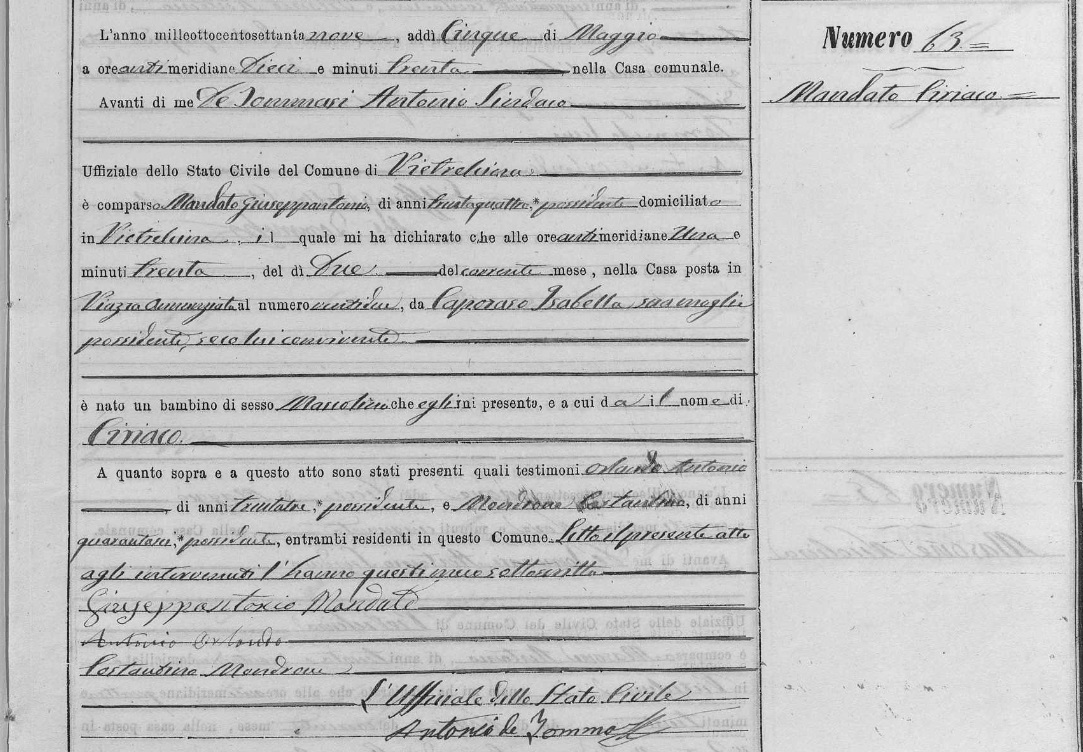 Numero 63=
Mandato Ciriaco=
L'anno milleottocentosettantanove, addì Cinque di Maggio
a ore antimeridiane Dieci e minuti trenta, nella Casa comunale.
Avanti di me De Tommasi Antonio Sindaco
Uffiziale dello Stato Civile del Comune di Pietrelcina
è comparso Mandato Giuseppantonio, di anni trentaquattro,* possidente domiciliato
in Pietrelcina, il quale mi ha dichiarato che alle ore antimeridiane Una e
minuti trenta, del dì Due del corrente mese, nella Casa posta in
Piazza Annunziata al numero ventidue, da Caporaso Isabella sua moglie
possidente, seco lui convivente
è nato un bambino di sesso Mascolino che egli mi presenta, e a cui dà il nome di
Ciriaco.
A quanto sopra e a questo atto sono stati presenti quali testimoni Orlando Antonio
di anni trentatre,* possidente, e Mandrone Costantino, di anni
possidente, entrambi residenti in questo Comune. Letto il presente atto
agli intervenuti l'hanno questi meco sottoscritto
Giuseppantonio Mandato
Antonio Orlando
Costantino Mandrone
L'Uffiziale dello Stato Civile
Antonio de Tommasi